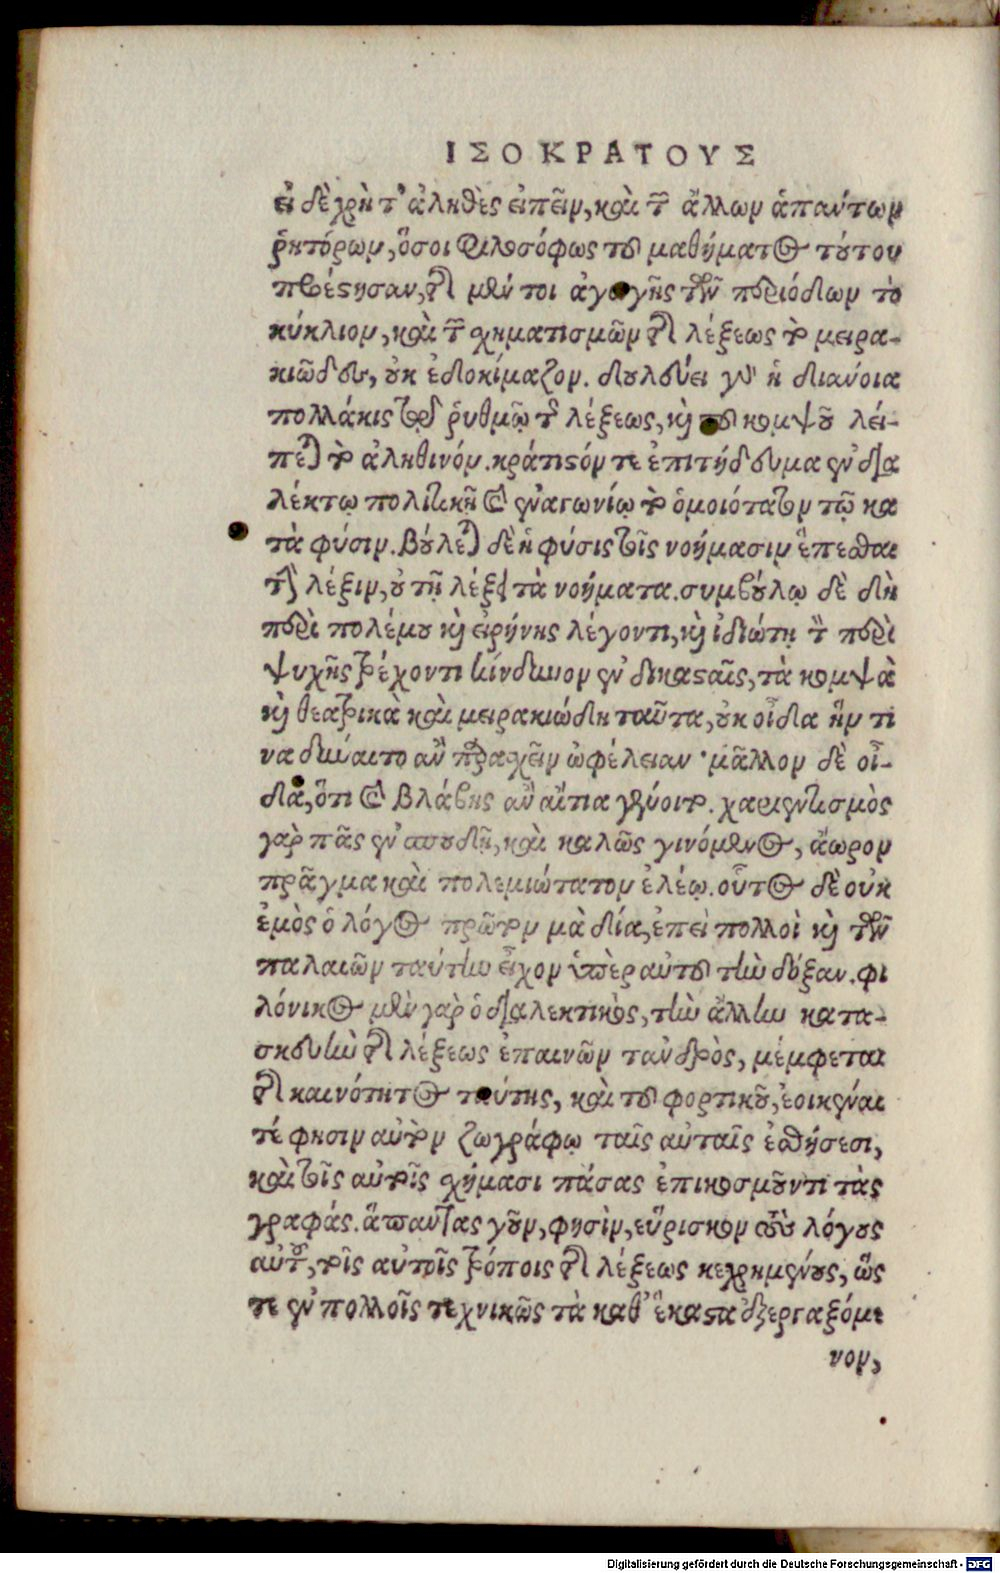 ΙΣΟΚΡΑΤΟΥΣ
εἰ δὲ χρὴ τ' ἀληθὲς εἰπεῖν, καὶ τῶν ἄλλων ἁπάντων
ῥητόρων, ὅσοι φιλοσόφως τοῦ μαθήματος τούτου
προέστησαν, τῆς μέν τοι ἀγωγῆς τῶν περιόδων τὸ
κύκλιον, καὶ τῶν χηματισμῶν τῆς λέξεως τὸ μειρα-
κιῶδες, οὐκ ἐδοκίμαζον. δουλεύει γὰρ ἡ διάνοια
πολλάκις τῷ ῥυθμῷ τῆς λέξεως, καὶ τοῦ κομψοῦ λεί-
πεται τὸ ἀληθινόν. κράτιστόν τε ἐπιτήδευμα ἐν δια
λέκτῳ πολιτικῇ καὶ ἐναγωνίῳ τὸ ὁμοιότατον τῷ κα
τὰ φύσιν. βούλεται δὲ ἡ φύσις τοῖς νοήμασιν ἕπεσθαι
τὴν λέξιν, οὐ τῇ λέξει τὰ νοήματα. συμβούλῳ δὲ δὴ
περὶ πολέμου καὶ εἰρήνης λέγοντι, καὶ ἰδιώτῃ τὸν περὶ
ψυχῆς τρέχοντι κίνδυνον ἐν δικασταῖς, τὰ κομψὰ
καὶ θεατρικὰ καὶ μειρακιώδη ταῦτα, οὐκ οἶδα ἥν τι
να δύναιτο ἂν παρασχεῖν ὠφέλειαν· μᾶλλον δὲ οἶ-
δα, ὅτι καὶ βλάβης ἂν αἴτια γένοιτο. χαριεντισμὸς
γὰρ πᾶς ἐν σπουδῇ, καὶ καλῶς γινόμενος, ἄωρον
πρᾶγμα καὶ πολεμιώτατον ἐλέῳ. οὗτος δὲ οὐκ
ἐμὸς ὁ λόγος πρῶτον μὰ δία, ἐπεὶ πολλοὶ καὶ τῶν
παλαιῶν ταύτην εἶχον ὑπὲρ αὐτοῦ τὴν δόξαν. φι
λόνικος μὲν γὰρ ὁ διαλεκτικὸς, τὴν ἄλλην κατα-
σκευὴν τῆς λέξεως ἐπαινῶν τανδρὸς, μέμφεται
τῆς καινότητος ταύτης, καὶ τοῦ φορτικοῦ, ἐοικέναι
τέ φησιν αὐτὸν ζωγράφῳ ταῖς αὐταῖς ἐσθήσεσι,
καὶ τοῖς αὐτοῖς χήμασι πάσας ἐπικοσμοῦντι τὰς
γραφάς. ἅπαντας γοῦν, φησὶν, εὕρισκον τοὺς λόγους
αὐτοῦ, τοῖς αὐτοῖς τρόποις τῆς λέξεως κεχρημένους, ὥς
τε ἐν πολλοῖς τεχνικῶς τὰ καθ' ἕκαστα ἐξεργαξόμε
νον,
Digitalisierung gefördert durch die Deutsche Forschungsgemeinschaft - DFG